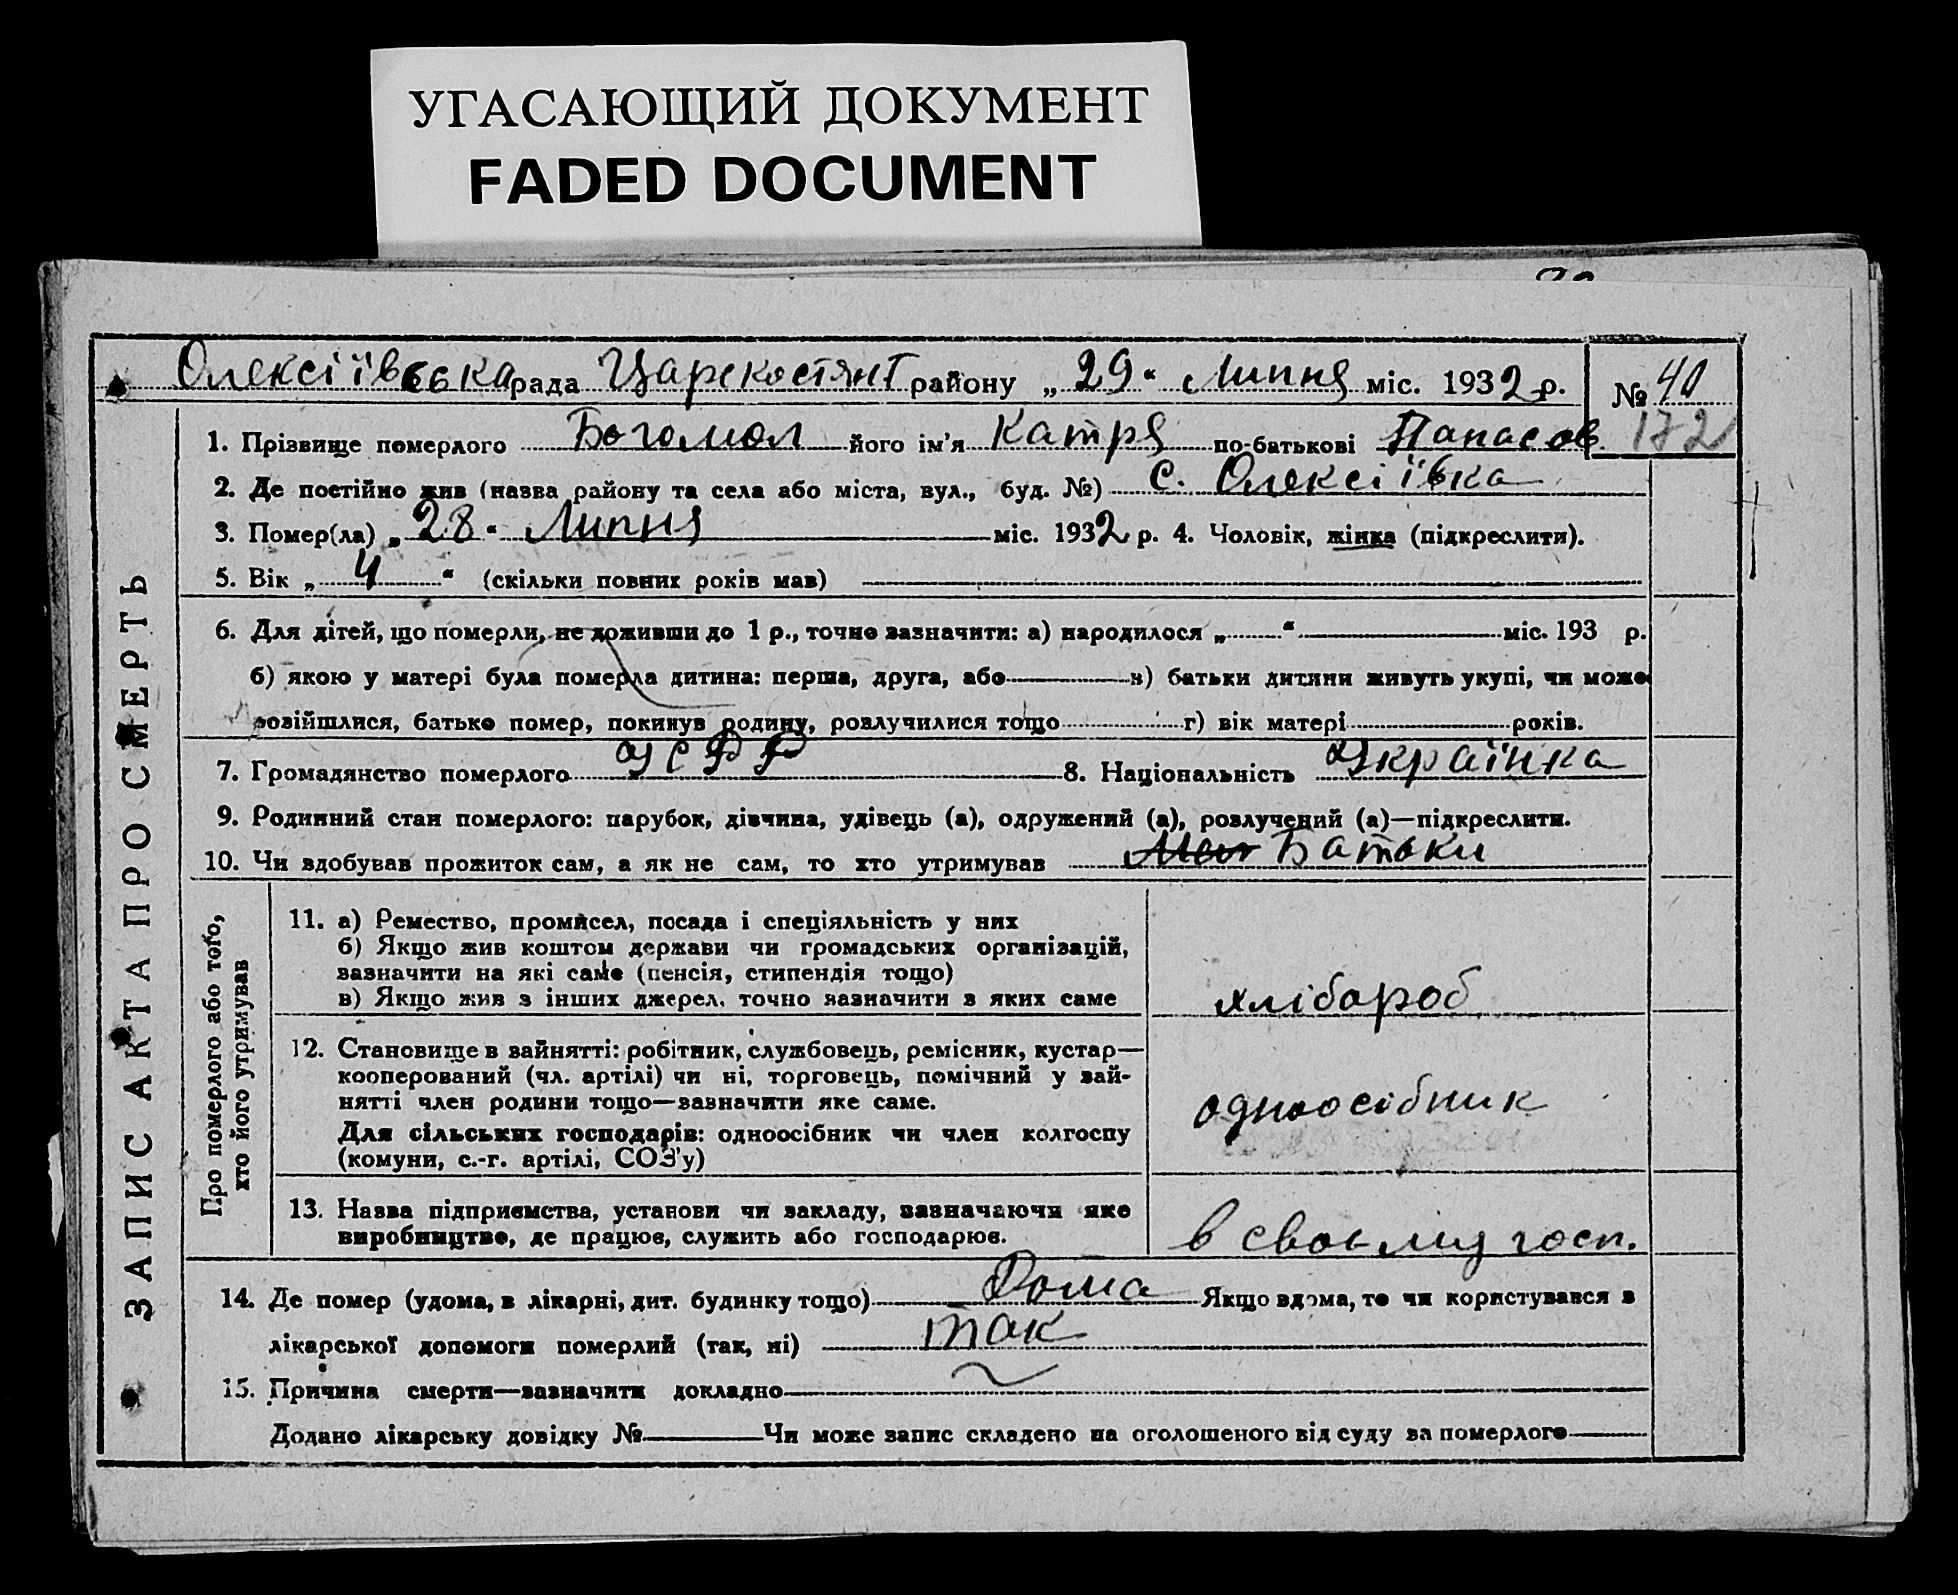 УГАСАЮЩИЙ ДОКУМЕНТ
FADED DOCUMENT
Олексіївська рада Царекостянт району „29“ Липня міс. 1932 р. № 40
1. Прізвище померлого Богомол його ім’я Катря по-батькові Панасов. 172
2. Де постійно жив (назва району та села або міста, вул., буд. №) С. Олексіївка
3. Помер(ла) „28“ Липня міс. 1932 р. 4. Чоловік, жінка (підкреслити).
5. Вік „4“ (скільки повних років мав)
6. Для дітей, що померли, не доживши до 1 р., точно зазначити: а) народилося „ “ міс. 193 р.
б) якою у матері була померла дитина: перша, друга, або в) батьки дитини живуть укупі, чи може
розійшлися, батько помер, покинув родину, розлучилися тощо г) вік матері років.
7. Громадянство померлого УСРР 8. Національність Українка
9. Родинний стан померлого: парубок, дівчина, удівець (а), одружений (а), розлучений (а)—підкреслити.
10. Чи здобував прожиток сам, а як не сам, то хто утримував Батьки
ЗАПИС АКТА ПРО СМЕРТЬ
Про померлого або того,
хто його утримував
11. а) Ремество, промисел, посада і спеціяльність у них
б) Якщо жив коштом держави чи громадських організацій,
зазначити на які саме (пенсія, стипендія тощо)
в) Якщо жив з інших джерел, точно зазначити з яких саме
хлібороб
12. Становище в зайнятті: робітник, службовець, ремісник, кустар—
кооперований (чл. артілі) чи ні, торговець, помічний у зай-
нятті член родини тощо—зазначити яке саме.
Для сільських господарів: одноосібник чи член колгоспу
(комуни, с.-г. артілі, СОЗ’у)
одноосібник
13. Назва підприємства, установи чи закладу, зазначаючи яке
виробництво, де працює, служить або господарює.
в своьму госп.
14. Де помер (удома, в лікарні, дит. будинку тощо) Дома Якщо вдома, то чи користувався з
лікарської допомоги померлий (так, ні) так
15. Причина смерти—зазначити докладно
Додано лікарську довідку № Чи може запис складено на оголошеного від суду за померлого